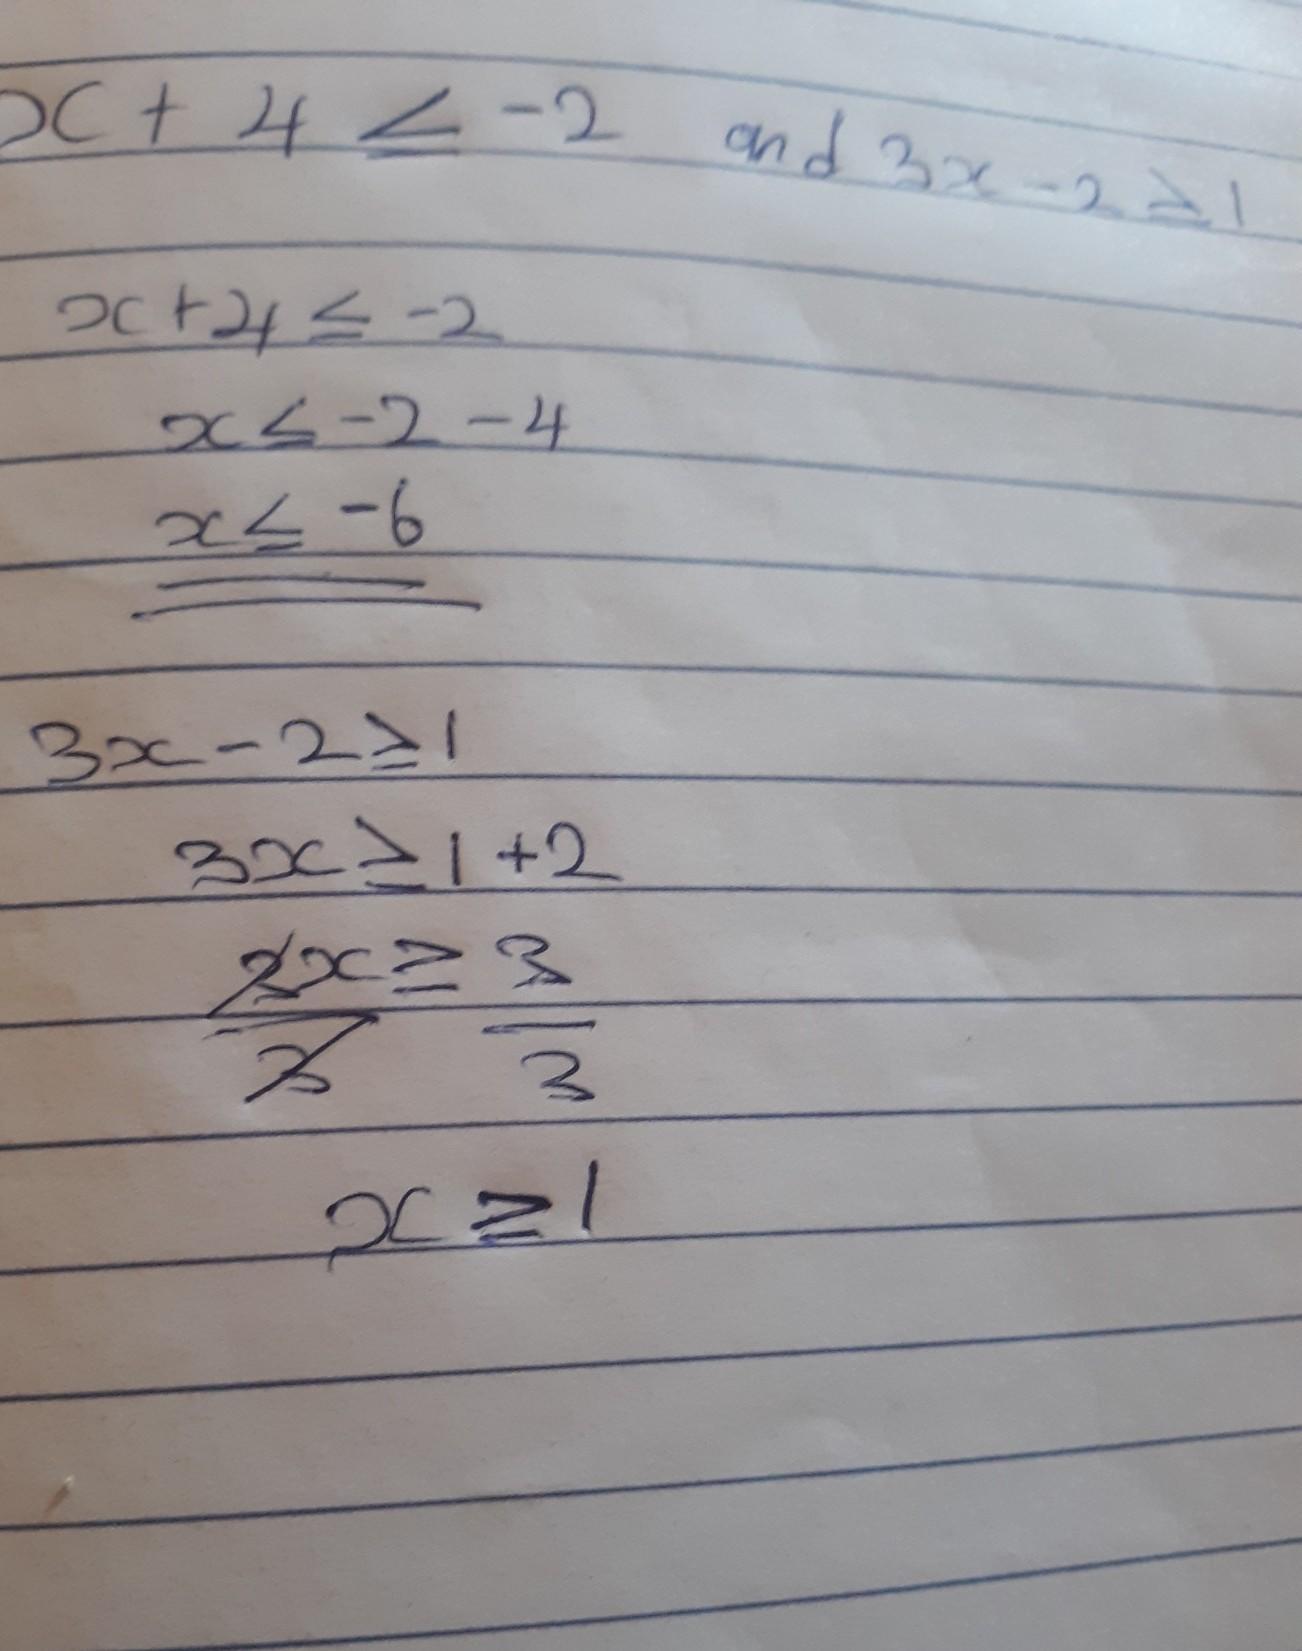 x + 4 ≤ -2 and 3x - 2 ≥ 1
x + 4 ≤ -2
x ≤ -2 - 4
x ≤ -6
3x - 2 ≥ 1
3x ≥ 1 + 2
3x ≥ 3
3 3
x ≥ 1